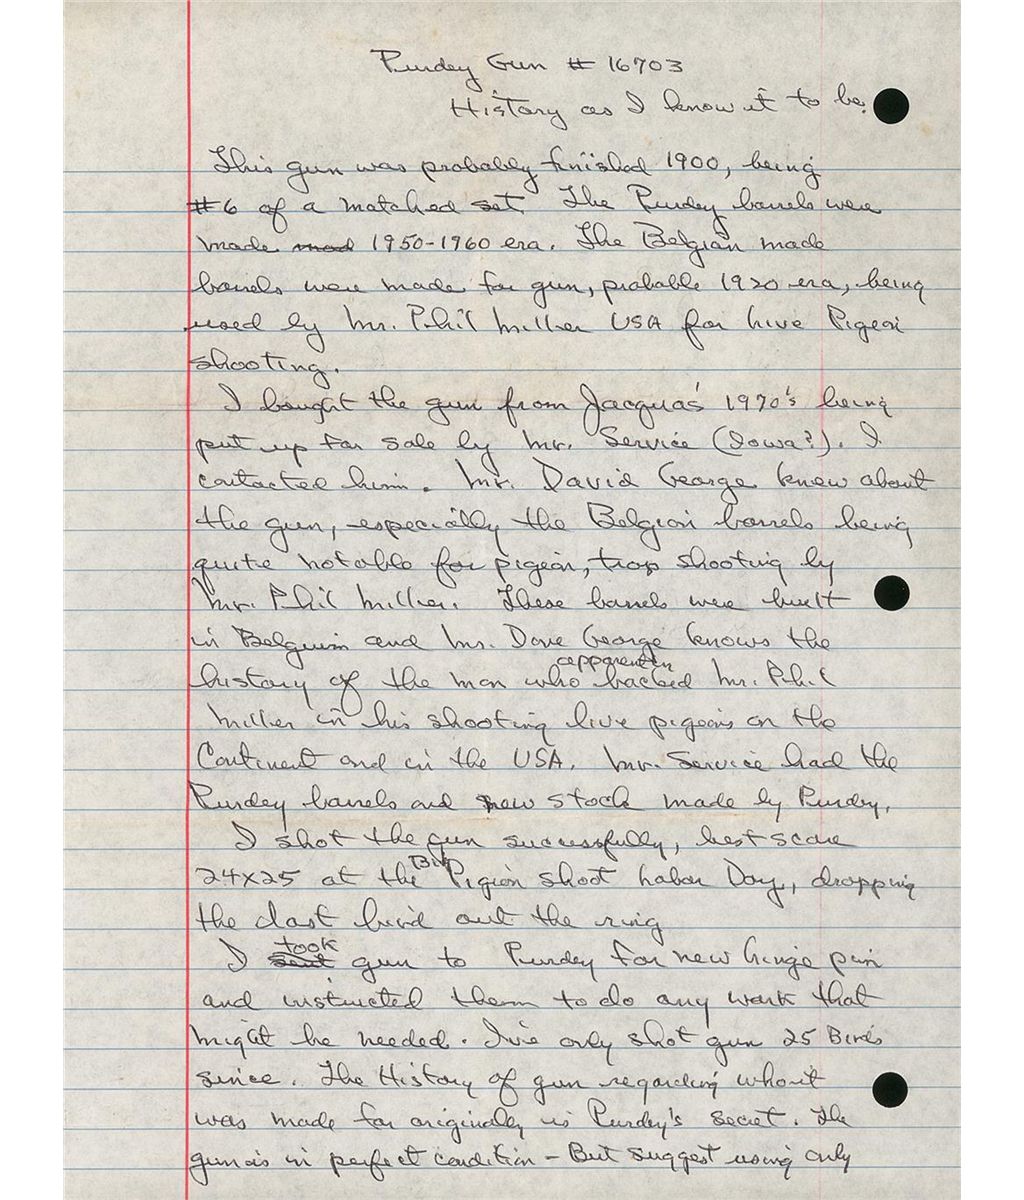 Purdey Gun # 16703
History as I know it to be.
This gun was probably finished 1900, being
#6 of a matched set. The Purdey barrels were
made 1950-1960 era. The Belgian made
barrels were made for gun, probable 1920 era, being
used by Mr. Phil Miller USA for live Pigeon
shooting.
I bought the gun from Jacqua's 1970's being
put up for sale by Mr. Service (Iowa?). I
contacted him. Mr. David George knew about
the gun, especially the Belgian barrels being
quite notable for pigeon, trap shooting by
Mr. Phil Miller. These barrels were built
in Belguim and Mr. Dave George knows the
history of the man who apparently backed Mr. Phil
Miller in his shooting live pigeons on the
Continent and in the USA. Mr. Service had the
Purdey barrels and new stock made by Purdey.
I shot the gun successfully, best score
24x25 at the Pigeon shoot Labor Day, dropping
the last bird out the ring
I took gun to Purdey for new hinge pin
and instructed them to do any work that
might be needed. I've only shot gun 25 Birds
since. The History of gun regarding who it
was made for originally is Purdey's secret. The
gun is in perfect condition - But suggest using only